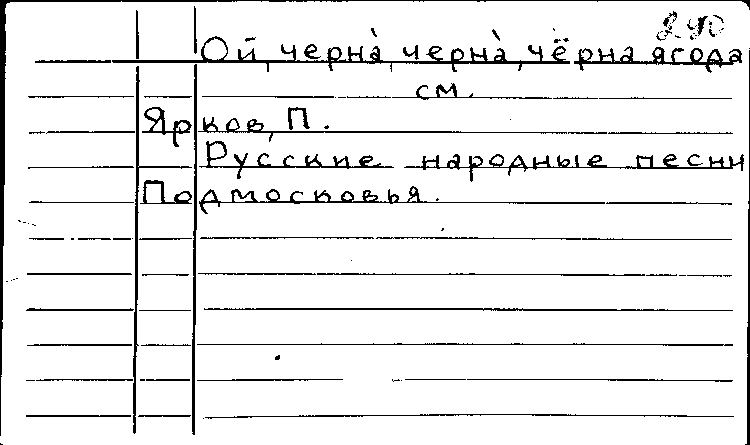 290
Ой, черна̀, черна̀, чёрна ягода
см.
Ярков, П.
Русские народные песни
Подмосковья.